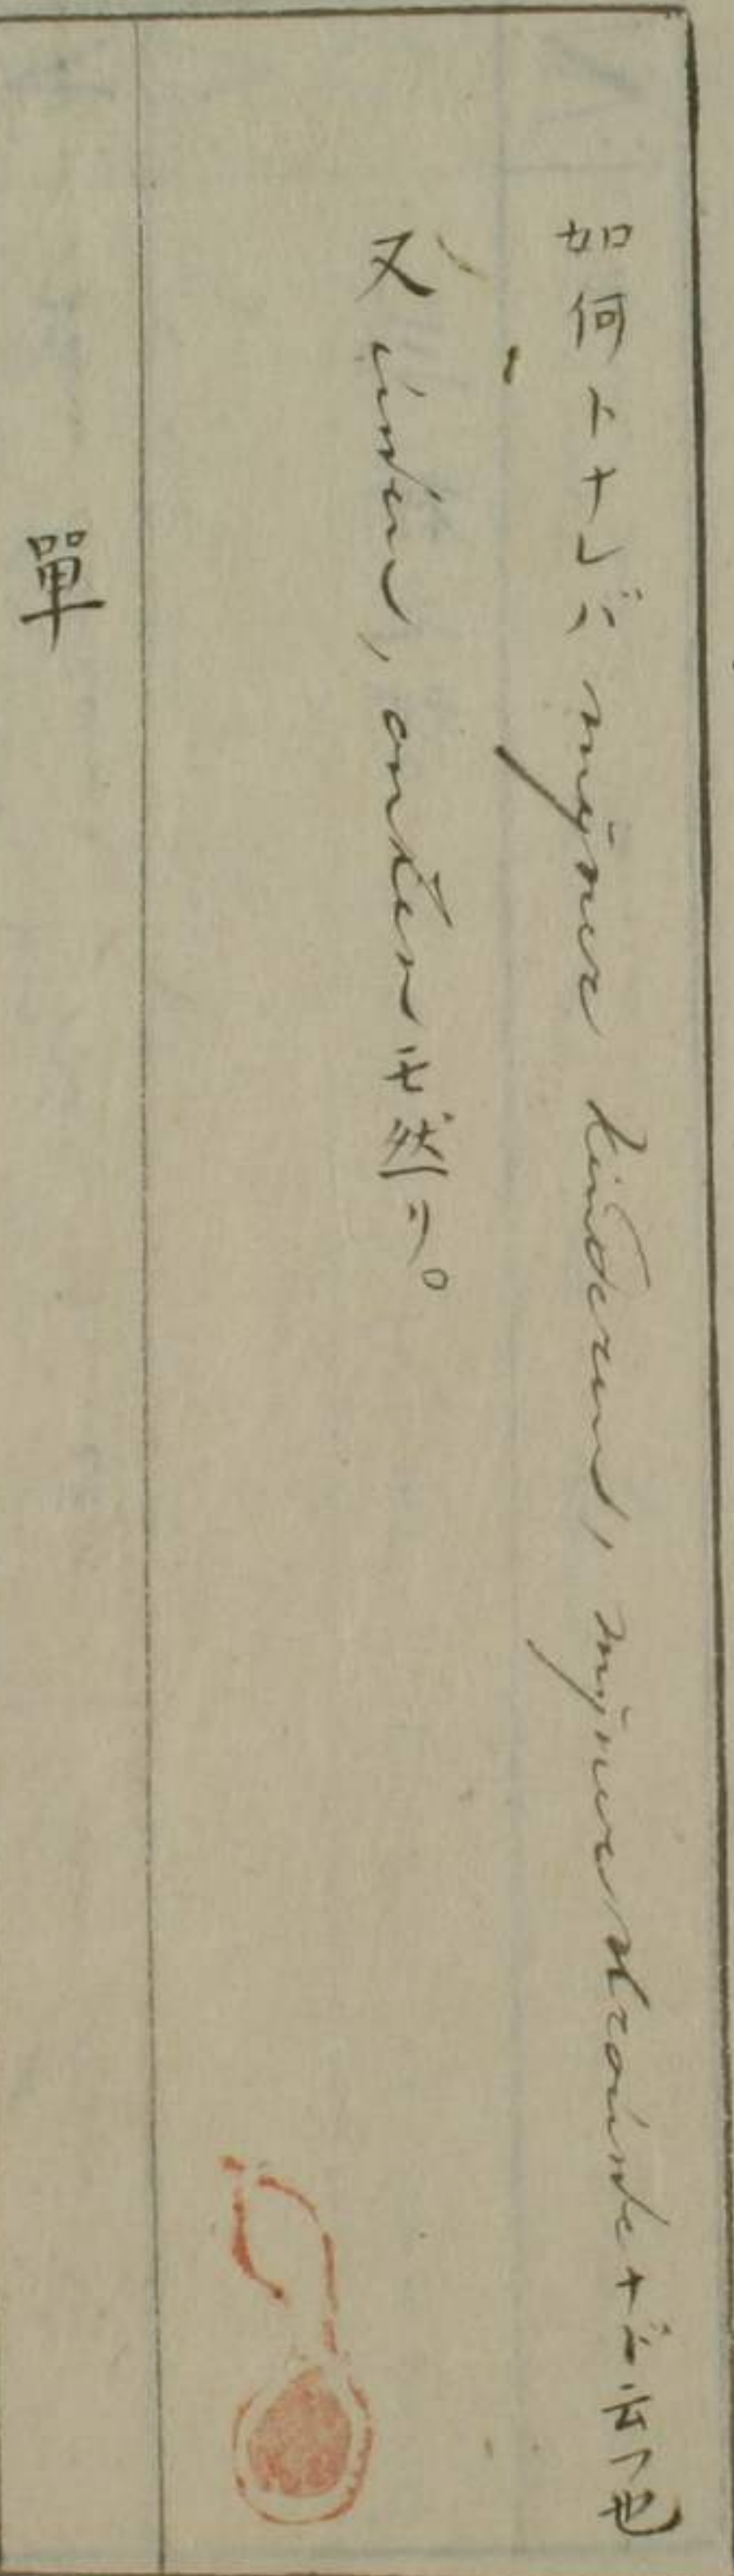 如何トナレバ mijner kinderen, mijner vrouwe ナド云フ也
又 uwer, onzer モ然リ。
單